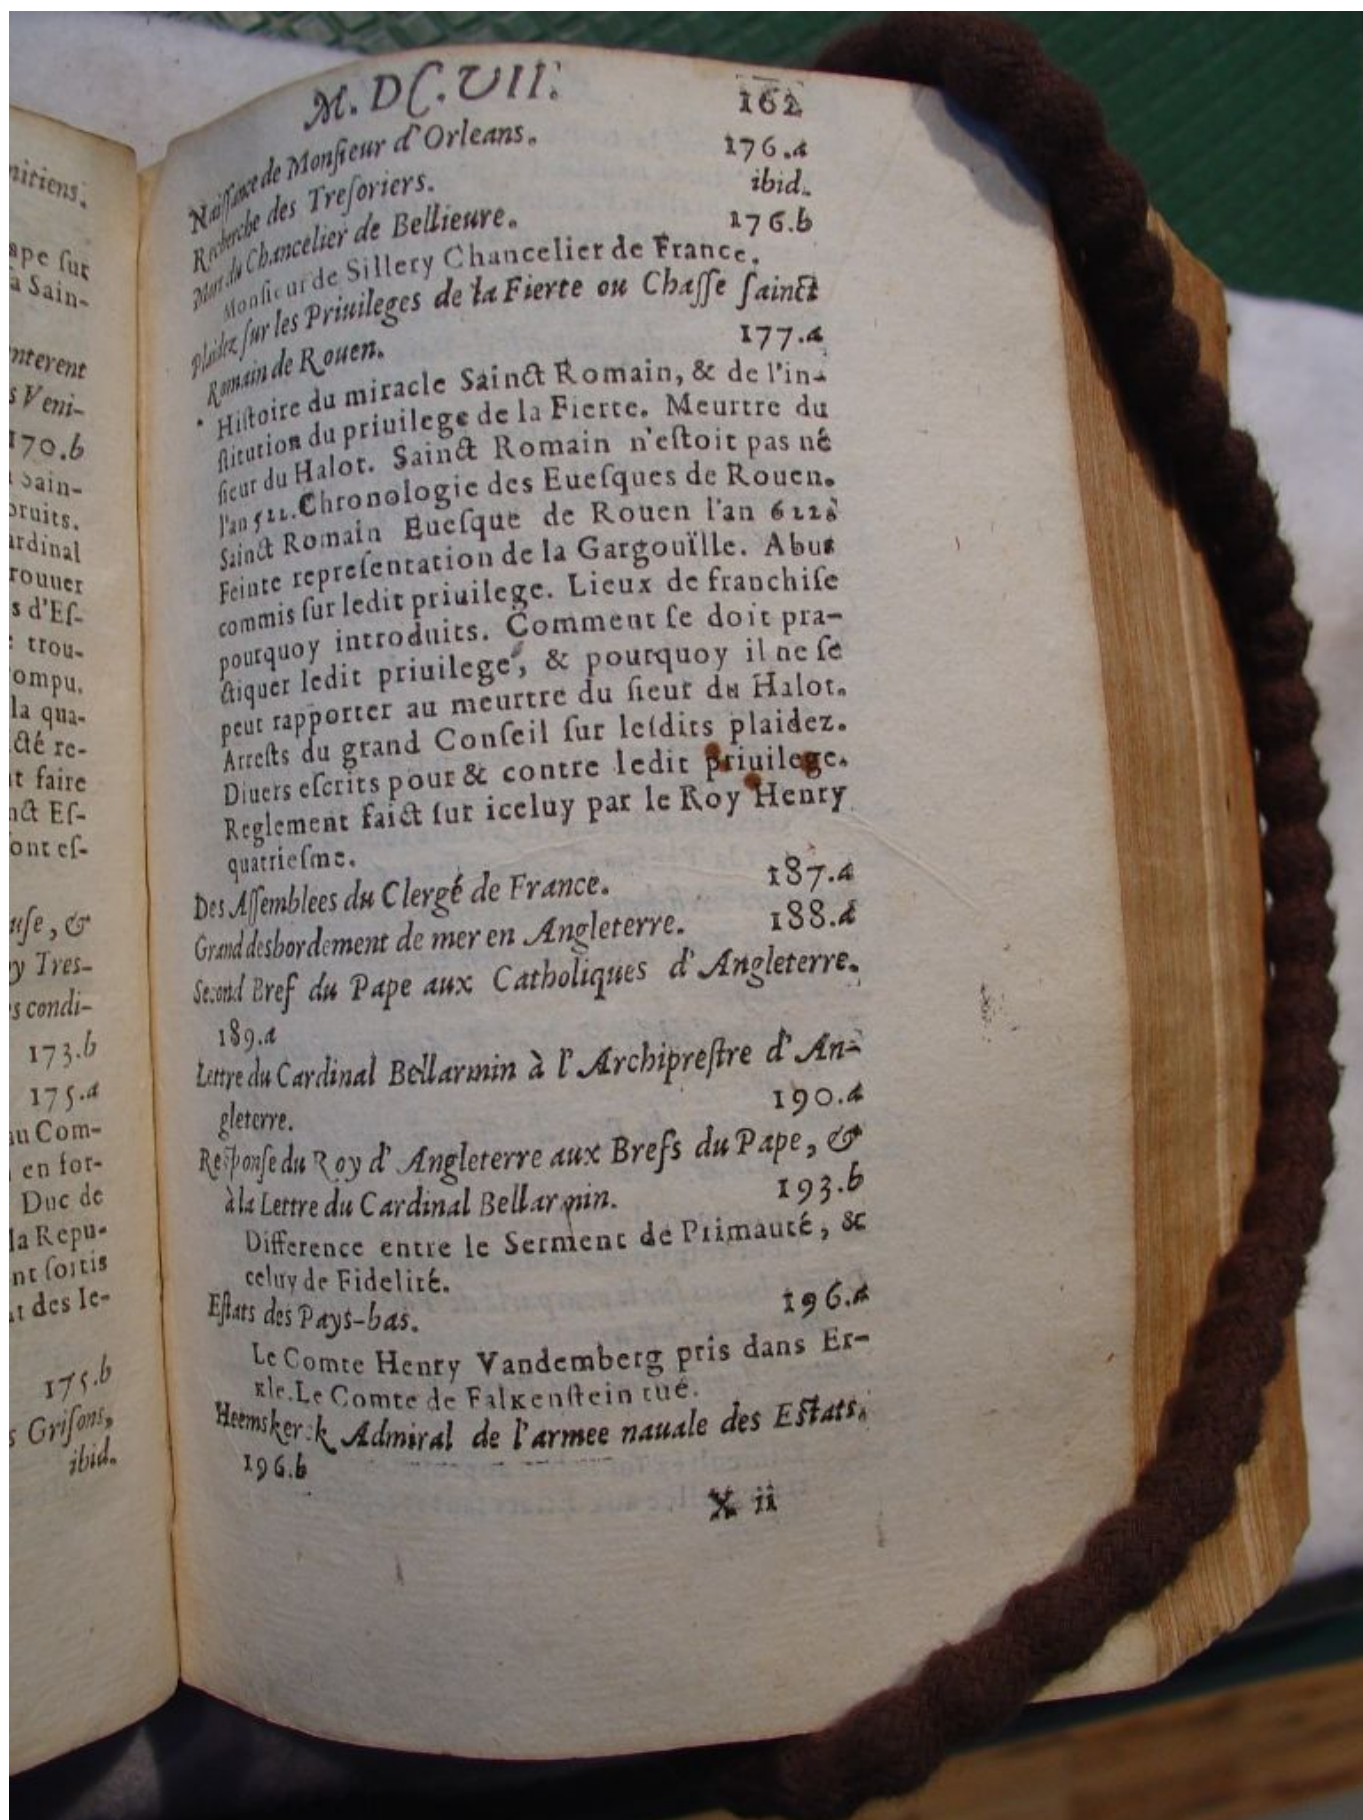 nitiens.
ape ſur
à Sain-
nterent
s Veni-
170.b
Sain-
bruits.
ardinal
rouuer
s d'Eſ-
trou-
ompu.
la qua-
cté re-
t faire
nct Eſ-
ont eſ-
uſe, &
y Treſ-
s condi-
173.b
175.a
au Com-
en for-
Duc de
la Repu-
nt ſortis
t des Ie-
175.b
s Griſons,
ibid.
M. DC. VII.
162
Naiſſance de Monſieur d'Orleans.
176.a
Recherche des Treſoriers.
ibid.
Mort du Chancelier de Bellieure.
176.b
Monſieur de Sillery Chancelier de France.
Plaidez ſur les Priuileges de la Fierte ou Chaſſe ſainct
Romain de Rouen.
177.a
Hiſtoire du miracle Sainct Romain, & de l'in-
ſtitution du priuilege de la Fierte. Meurtre du
ſieur du Halot. Sainct Romain n'eſtoit pas né
l'an 522. Chronologie des Eueſques de Rouen.
Sainct Romain Eueſque de Rouen l'an
Feinte repreſentation de la Gargouïlle. Abus
commis ſur ledit priuilege. Lieux de franchiſe
pourquoy introduits. Comment ſe doit pra-
ctiquer ledit priuilege, & pourquoy il ne ſe
peut rapporter au meurtre du ſieur du Halot.
Arreſts du grand Conſeil ſur leſdits plaidez.
Diuers eſcrits pour & contre ledit priuilege.
Reglement faict ſur iceluy par le Roy Henry
quatrieſme.
Des Aſſemblees du Clergé de France.
187.a
Grand desbordement de mer en Angleterre.
188.a
Second Bref du Pape aux Catholiques d'Angleterre.
189.a
Lettre du Cardinal Bellarmin à l'Archipreſtre d'An-
gleterre.
190.a
Reſponſe du Roy d'Angleterre aux Brefs du Pape, &
à la Lettre du Cardinal Bellarmin.
193.b
Difference entre le Serment de Primauté, &
celuy de Fidelité.
Eſtats des Pays-bas.
196.a
Le Comte Henry Vandemberg pris dans Er-
kle. Le Comte de Falkenſtein tué.
Heemskerck Admiral de l'armee nauale des Eſtats.
196.b
X ii